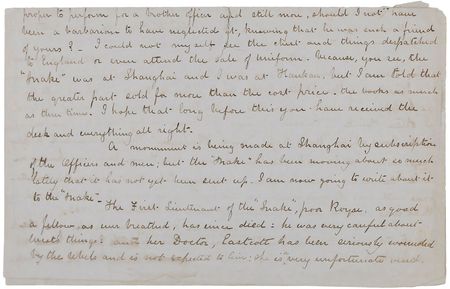 proper to perform for a brother officer and still more, should I not have
been a barbarian to have neglected it, knowing that he was such a friend
of yours? - I could not myself see the chest and things despatched
to England or even attend the sale of uniform. because, you see, the
"Snake" was at Shanghai and I was at Hankow, but I am told that
the greater part sold for more than the cost price. the books as much
as three times. I hope that long before this you have received the
desk and everything all right.
A monument is being made at Shanghai by subscription
of the Officers and men; but the "Snake" has been moving about so much
lately that it has not yet been sent up. I am now going to write about it
to the "Snake"-
The First Lieutenant of the "Snake", poor Royse, as good
a fellow as ever breathed, has since died: he was very careful about
things: and her Doctor, Eastcott has been seriously wounded
by the rebels and is not expected to live: she is very unfortunate